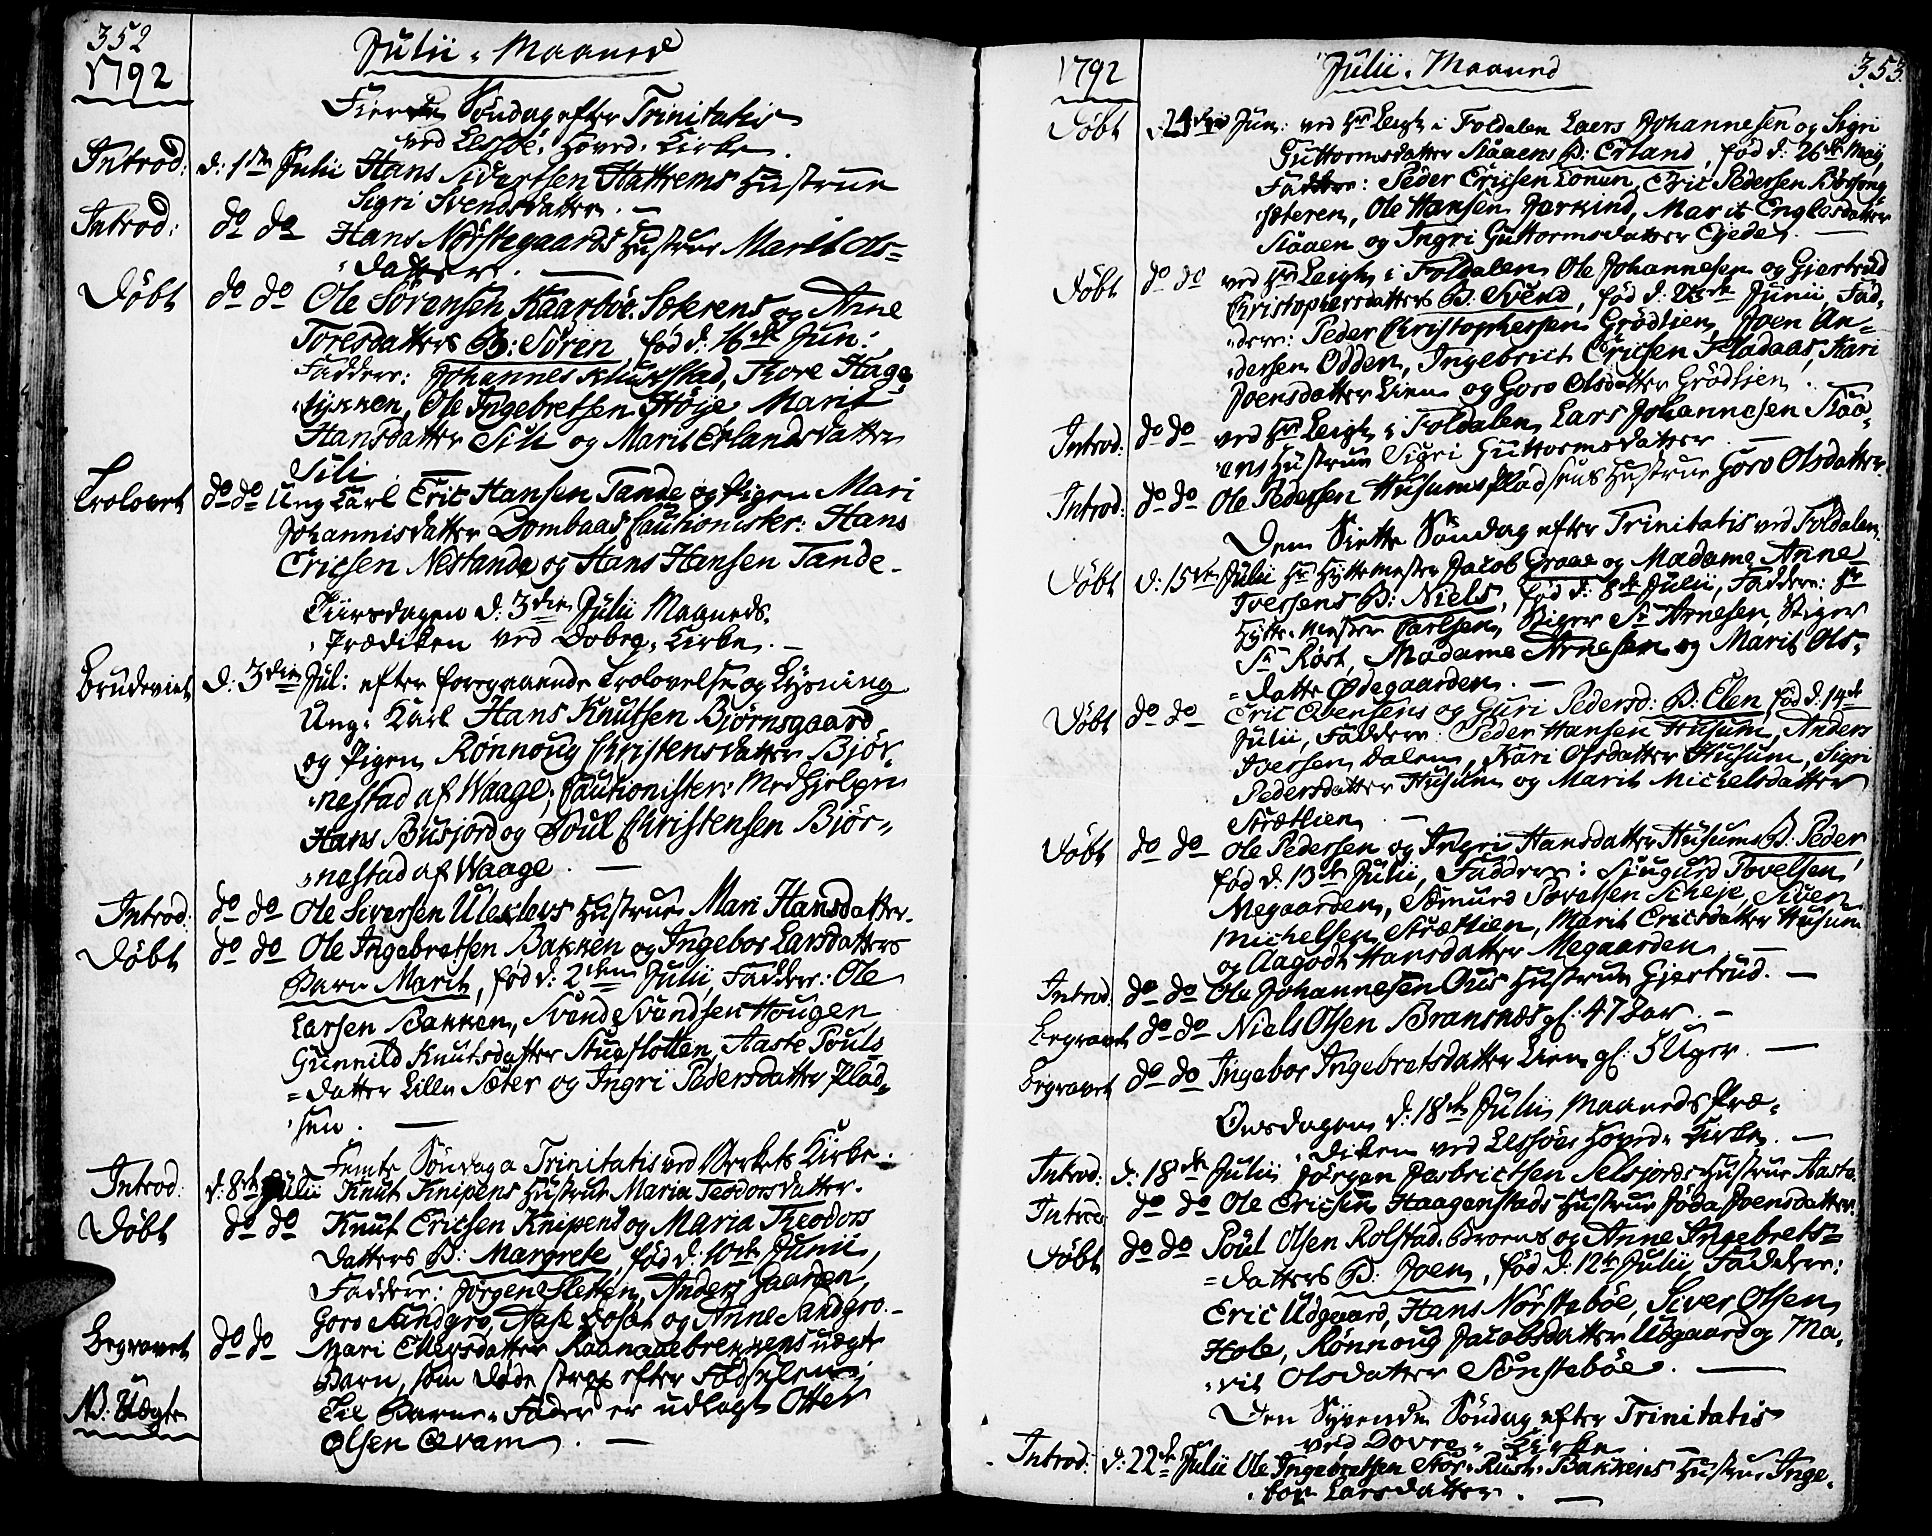 352
1792
Julii Maaned
Fierde Søndag efter Trinitatis
ved Lessøe Hoved Kirke.
Introd: d: 1ste Julii Hans Sivertsen Hattrems Hustrue
Sigri Svendsdatter. —
Introd: do do Hans Nørstegaards Hustrue Marit Ols=
datter. —
Døbt do do Ole Sørensen Kaarbøe Sokrens og Anne
Toresdatters B: Søren, fød d. 16de Jun:
Faddere: Johannes Klukstad, Thore Hage
lykken, Ole Ingebretsen Støje Marit
Hansdatter Sili og Marit Erlandsdatter
Sili
Trolovet do do Ung Karl Eric Hansen Tande og Pigen Mari
Johannisdatter Dombaas Cautionister: Hans
Ericsen Nestande og Hans Hansen Tande.
Tiirsdagen d. 3die Julii Maaneds
Prædiken ved Dovre Kirke. —
Brudeviet d: 3die Jul: efter foregaaende Trolovelse og Lysning
Ung Karl Hans Knutsen Bjørnsgaard
og Pigen Rønnoug Christensdatter Bjør
nestad af Waage, Cautionister: Medhjelper
Hans Busjord og Poul Christensen Bjør=
nestad af Waage. —
Introd: do do Ole Siversen Uleklevs Hustrue Mari Hansdatter.
Døbt do do Ole Ingebretsen Bakken og Ingebor Larsdatters
Barn Marit, fød d: 2den Julii, Faddere: Ole
Larsen Bakken, Svend Svendsen Hougen
Gunnild Knutsdatter Stugflotten, Aaste Pouls
=datter Lille Sæter og Ingri Pedersdatter Plad=
sen. —
Femte Søndag a Trinitatis ved Verkets Kirke.
Introd: d: 8de Julii Knut Knipens Hustrue Maria Teodorsdatter.
Døbt do do Knut Ericsen Knipens og Maria Theodors
datters B: Margrete, fød d. 10de Junii,
Faddere: Jørgen Sletten, Anders Gaarden,
Goro Sandgro, Aase og Anne Sandgro. —
Begravet do do Mari Ellersdatter uægte
Barn, som døde strax efter Fødselen,
NB: Uægte Til Barne-Fader er udlagt Otter
Olsen Qvam. —
1792
Julii Maaned
353
Døbt d: 24de Jun: ved Hr Leigh i Foldalen Laers Johannesen og Sigri
Guttormsdatter Slaaens B: Erland, fød d: 26de Maij,
Faddere: Peder Ericsen Lonen, Eric Pedersen Børsong
sæteren, Ole Hansen Jerkind, Marit Englesdatter
Slaaen og Ingri Guttormsdatter —
Døbt do do ved Hr Leigh i Foldalen Ole Johannesen og Gjertrud
Christophersdatters B: Svend, fød d: Junii, Fad=
dere: Peder Christophersen Grødlien, Joen An=
dersen Odden, Ingebrict Ericsen Kari
Joensdatter Lien og Goro Olsdatter Grødlien.
Introd: do do ved Hr Leigh i Foldalen Lars Johannesen Slaa=
ens Hustrue Sigri Guttormsdatter. —
Introd: do do Ole Pedersen Husums Pladsens Hustrue Goro Olsdatter.
Den Siette Søndag efter Trinitatis ved Foldalen.
Døbt d: 15de Julii Hr Hyttemester Jacob Graae og Madame Anne
Iversens B: Niels, fød d: 8de Julii, Faddere: Hr
Hytte Mester Carlsen, Stiger Sr Arnesen, Stiger
Sr Røst, Madame Arnesen og Marit Ols=
=datter Ødegaarden. —
Døbt do do Eric Evensens og Guri Pedersd: B: Elen, fød d. 14de
Julii, Faddere: Peder Hansen Husum, Anders
Iversen Dalen, Kari Olsdatter Husum, Sigri
Pedersdatter Husum og Marit Michelsdatter
Strætlien. —
Døbt do do Ole Pedersen og Ingri Hansdatter Husums B: Peder,
fød d. 13de Julii, Faddere: Siugurd Povelsen
Megaarden, Sæmund Povelsen Scheje, Siver
Michelsen Strætlien, Marit Ericsdatter Husum
og Aagodt Hansdatter Megaarden —
Introd: do do Ole Johannesen Ous Hustrue Gjertrud. —
Begravet do do Niels Olsen Bransnæs gl. 47 Aar. —
Begravet do do Ingebor Ingebretsdatter Lien gl: 3 Uger. —
Onsdagen d: 18de Julii Maaneds Præ=
diken ved Lessøes Hoved-Kirke. —
Introd: d: 18de Julii Jørgen Jasbrictsen Selsjords Hustrue Aaste.
Introd: do do Ole Ericsen Haagenstads Hustrue Jøda Joensdatter.
Døbt do do Poul Olsen Rolstad Broens og Anne Ingebrets=
=datters B: Joen, fød d. 12te Julii, Faddere:
Eric Udgaard, Hans Nørstebøe, Siver Olsen
Hole, Rønnoug Jacobsdatter Udgaard og Ma=
rit Olsdatter Sønstebøe. —
Den Syvende Søndag efter Trinitatis
ved Dovre Kirke
Introd: d: 22de Julii Ole Ingebretsen Stor-Rust-Bakkens Hustrue Inge=
bor Larsdatter. —